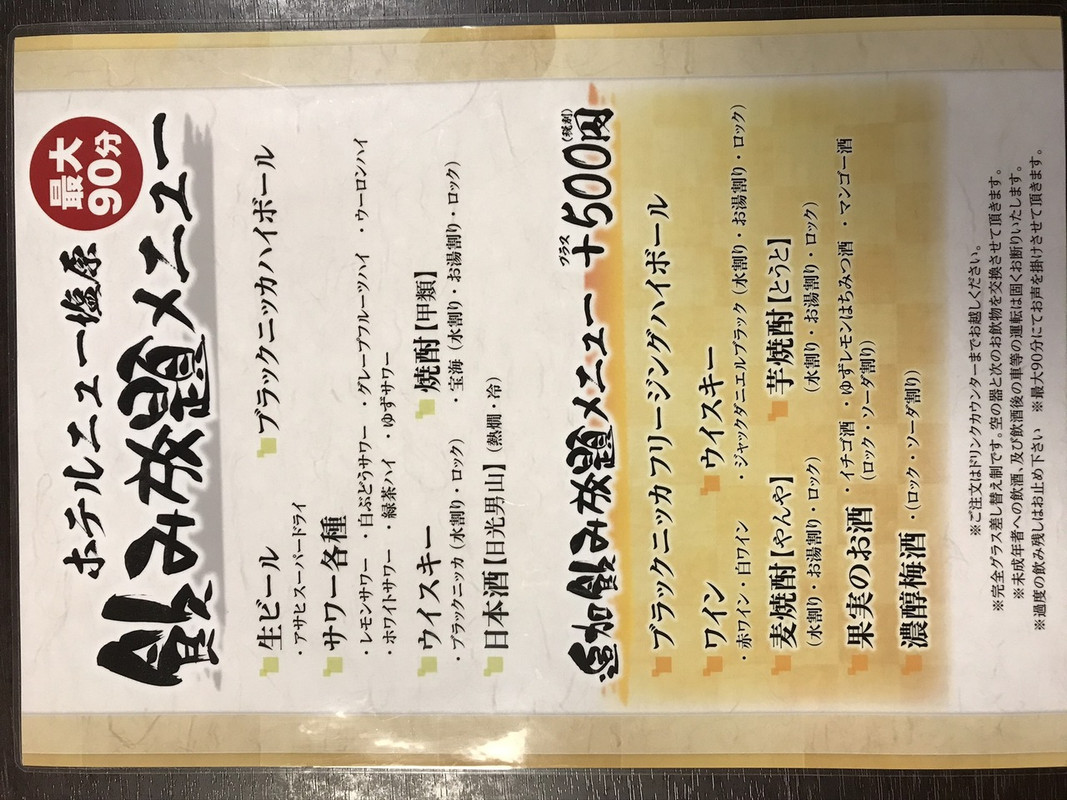 ホテルニュー塩原
最大
90分
飲み放題メニュー
生ビール
・アサヒスーパードライ
ブラックニッカハイボール
サワー各種
・レモンサワー ・白ぶどうサワー ・グレープフルーツハイ ・ウーロンハイ
・ホワイトサワー ・緑茶ハイ ・ゆずサワー
ウイスキー
・ブラックニッカ（水割り・ロック）
焼酎【甲類】
・宝海（水割り・お湯割り・ロック）
日本酒【日光男山】（熱燗・冷）
追加飲み放題メニュー
プラス
+500円(税別)
ブラックニッカフリージングハイボール
ワイン
・赤ワイン・白ワイン
ウイスキー
・ジャックダニエルブラック（水割り・お湯割り・ロック）
麦焼酎【やんや】
（水割り・お湯割り・ロック）
芋焼酎【とうと】
（水割り・お湯割り・ロック）
果実のお酒 ・イチゴ酒 ・ゆずレモンはちみつ酒 ・マンゴー酒
（ロック・ソーダ割り）
濃醇梅酒 ・（ロック・ソーダ割り）
※ご注文はドリンクカウンターまでお越しください。
※完全グラス差し替え制です。空の器と次のお飲物を交換させて頂きます。
※未成年者への飲酒、及び飲酒後の車等の運転は固くお断りいたします。
※過度の飲み残しはお止め下さい ※最大90分にてお声を掛けさせて頂きます。